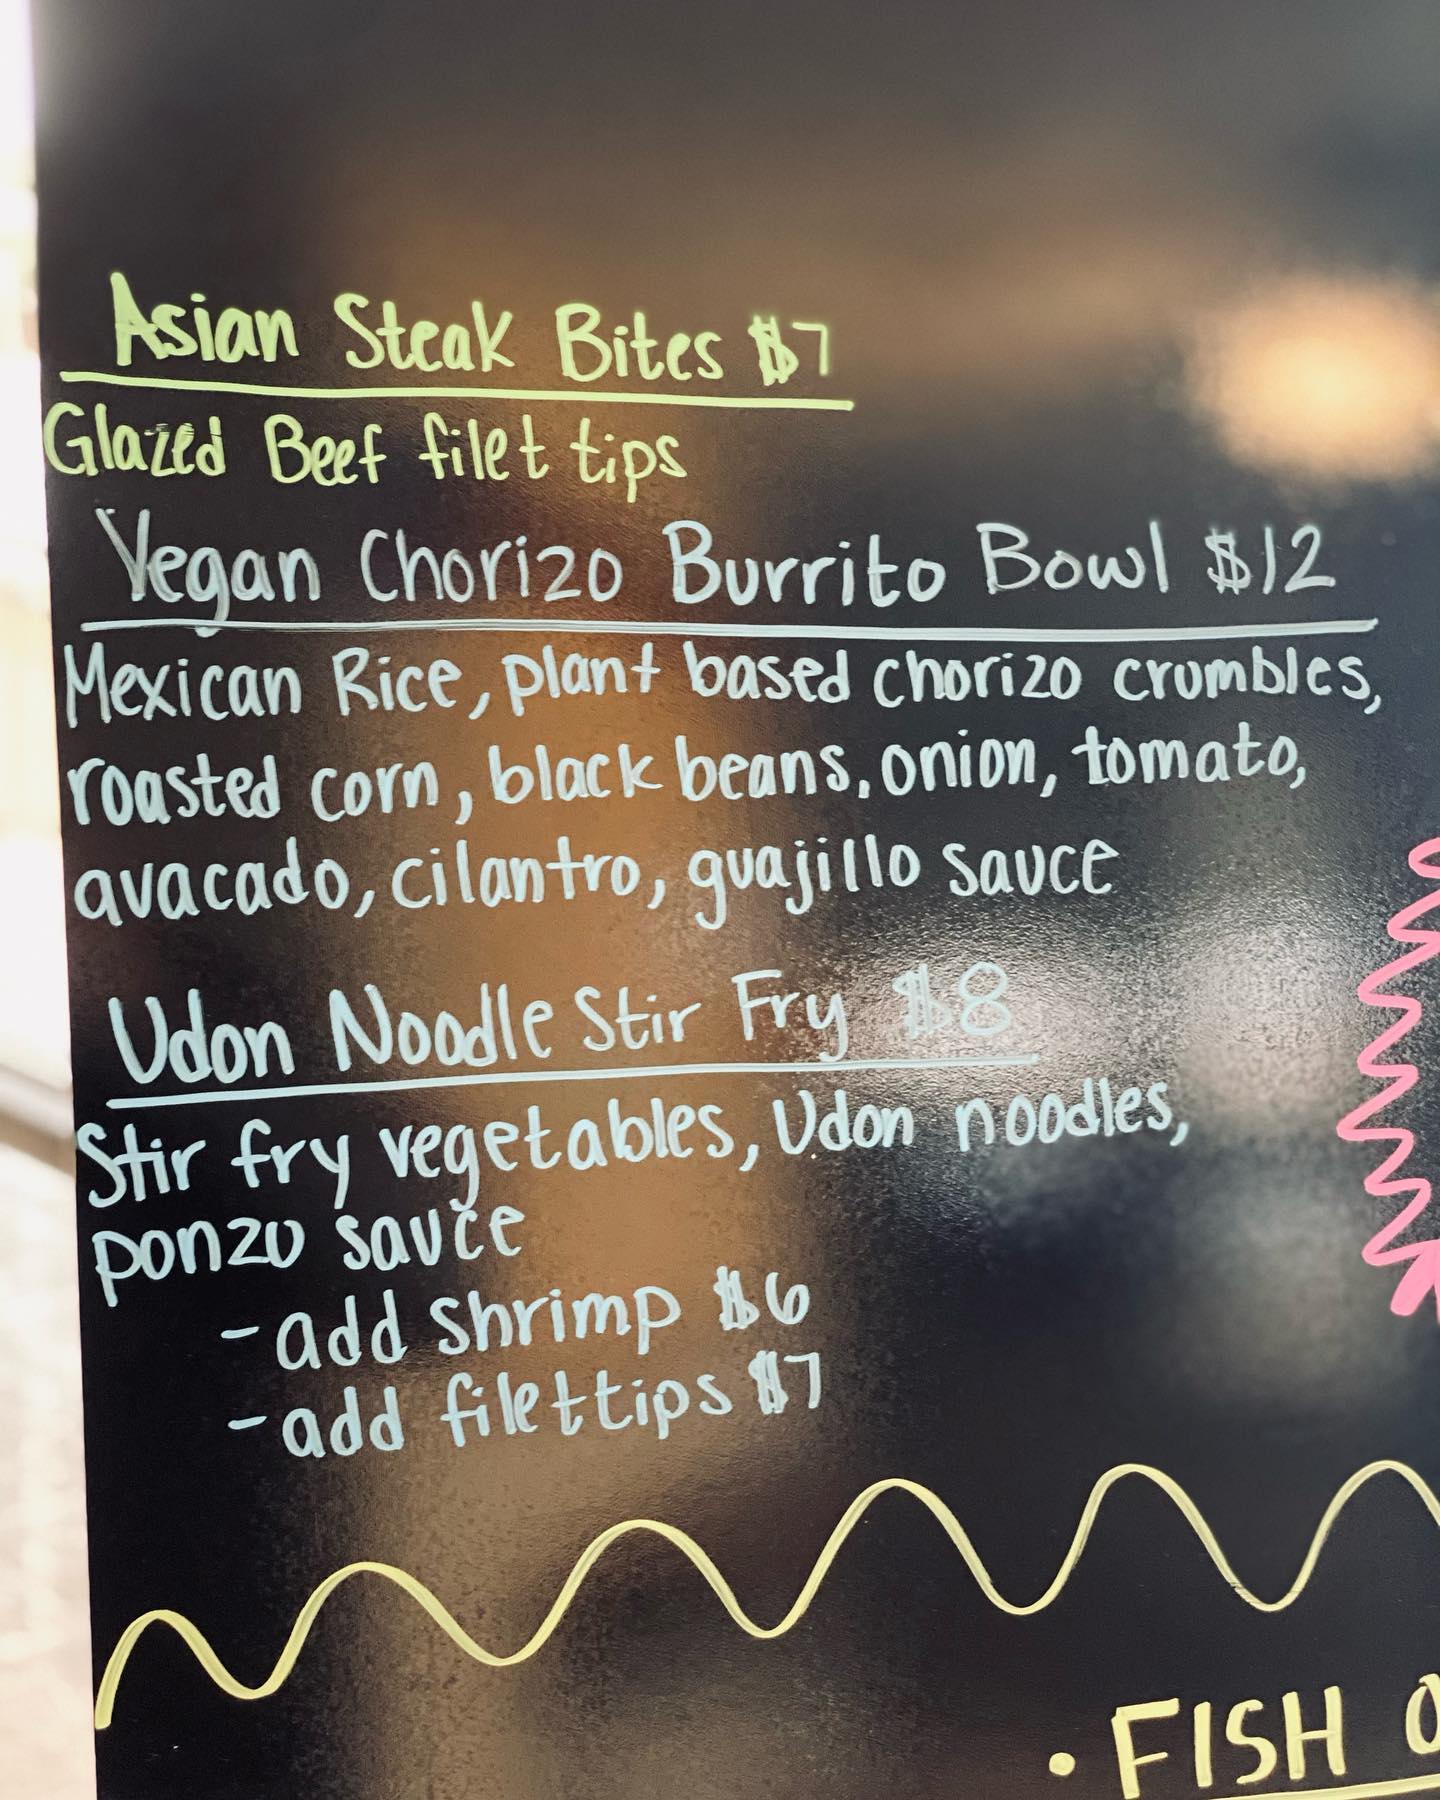 Asian Steak Bites $7
Glazed Beef filet tips
Vegan Chorizo Burrito Bowl $12
Mexican Rice, plant based chorizo crumbles,
roasted corn, black beans, onion, tomato,
avacado, cilantro, guajillo sauce
Udon Noodle Stir Fry $8
Stir fry vegetables, Udon noodles,
ponzu sauce
- add shrimp $6
- add filet tips $7
• FISH